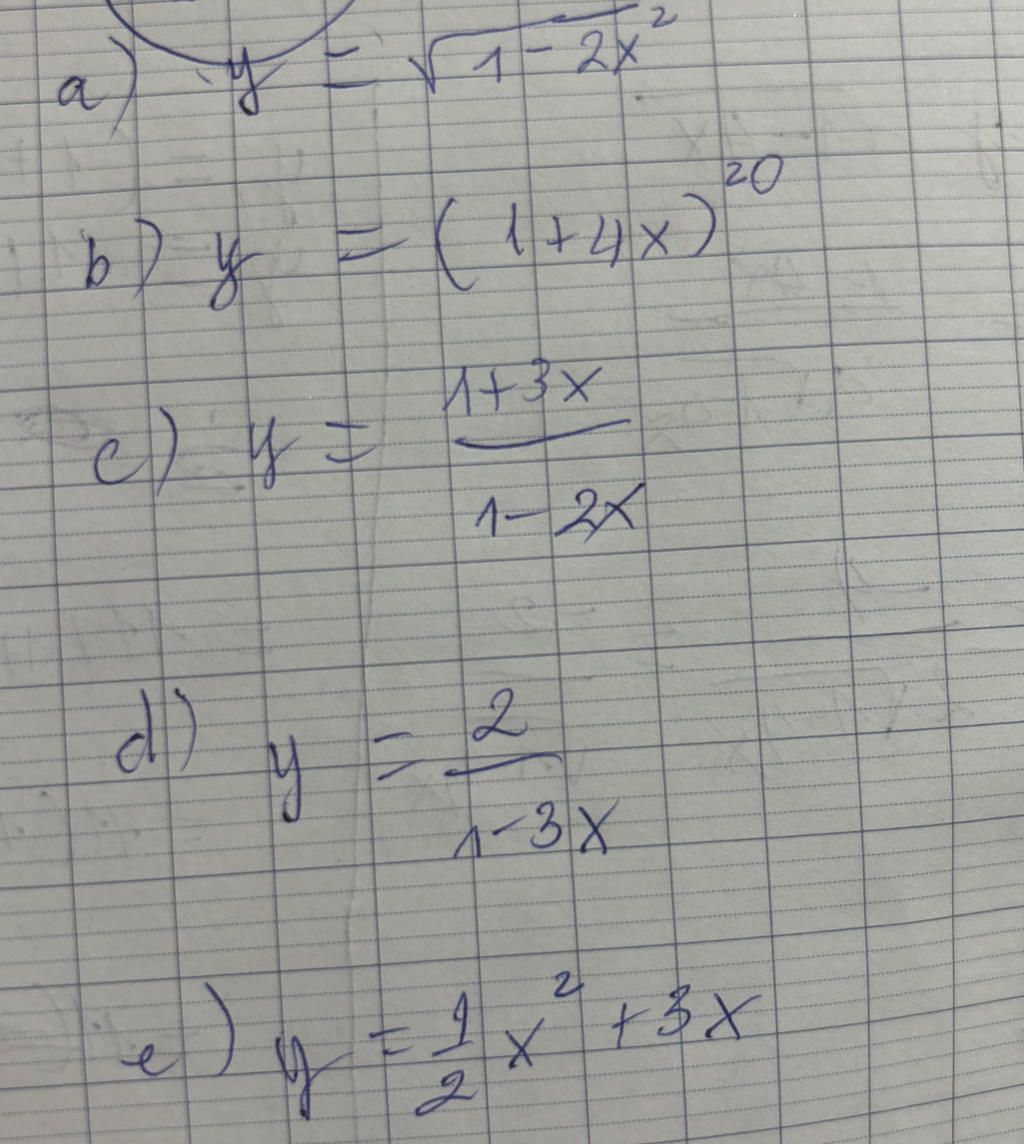 a) y = √1 - 2x²
b) y = (1 + 4x)²⁰
c) y = 1+3x / 1-2x
d) y = 2 / 1-3x
e) y = 1/2 x² + 3x